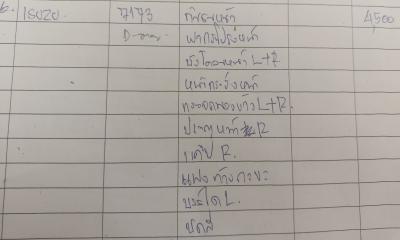 6. ISUZU. 7173 กันชนหน้า 4,500
D-max ฝากระโปรงหน้า
บังโคลนหน้า L+R
หน้ากระจังหน้า
L+R.
ประตูหน้า R
แก้ม R.
แผงข้างกระบะ
บันได L.
ขัดสี